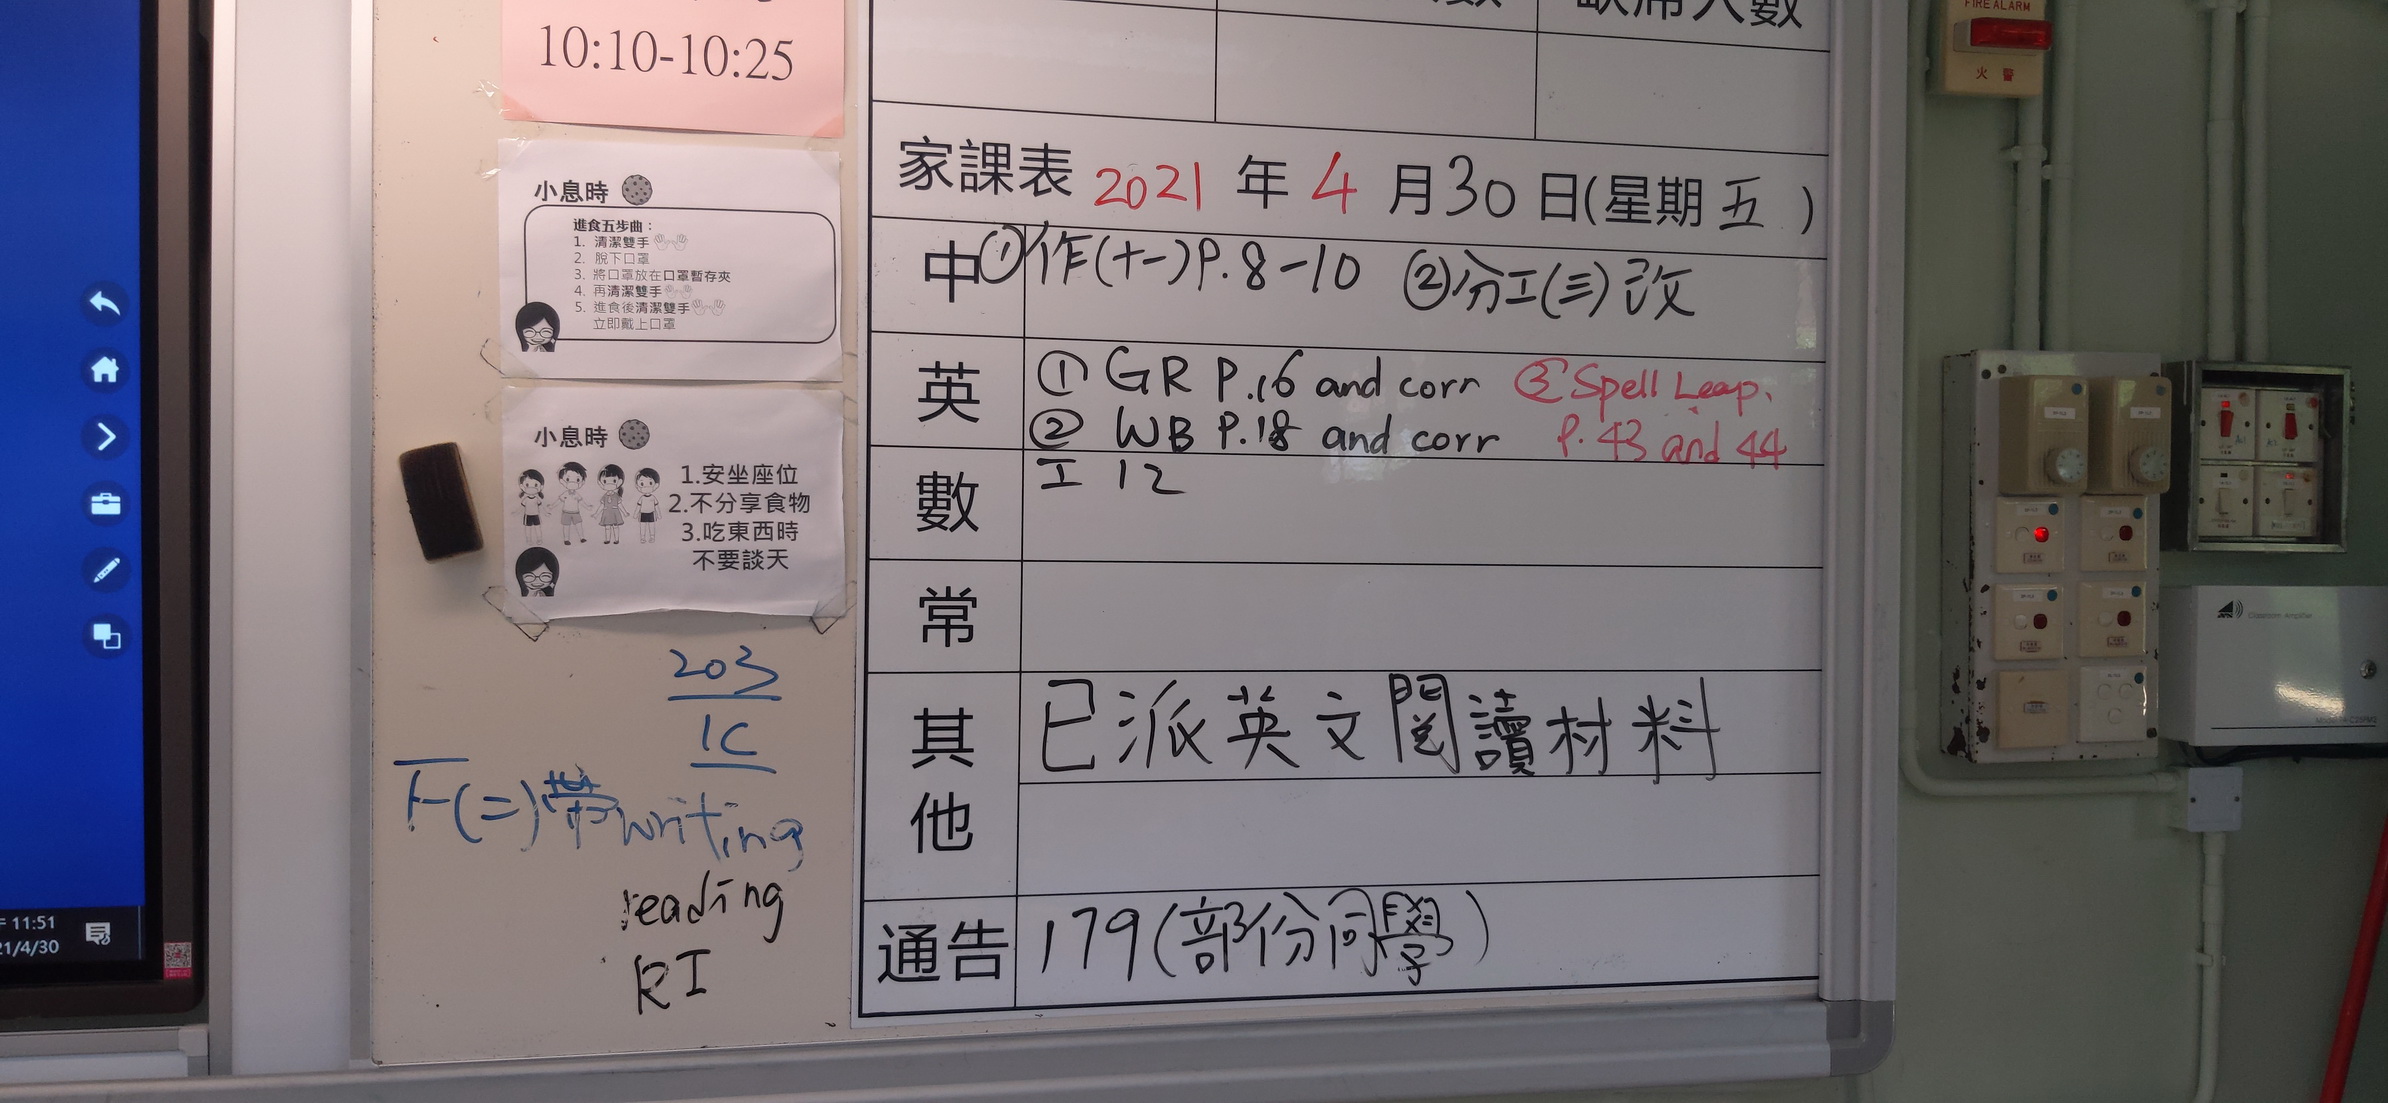 10:10-10:25
小息時
進食五步曲：
1. 清潔雙手
2. 脫下口罩
3. 將口罩放在口罩暫存夾
4. 再清潔雙手
5. 進食後清潔雙手
立即戴上口罩
小息時
1.安坐座位
2.不分享食物
3.吃東西時
不要談天
203
1C
下(二)帶writing
reading
RI
11:51
1/4/30
家課表 2021 年 4 月 30 日(星期 五 )
中 ①作(十一)P.8-10 ②分工(三)改
英 ① GR P.16 and corr ③ Spell Leap.
② WB P.18 and corr P. 43 and 44
數 工 12
常
其他 已派英文閱讀材料
通告 179(部份同學)
FIRE ALARM
火警
Classroom Amplifier